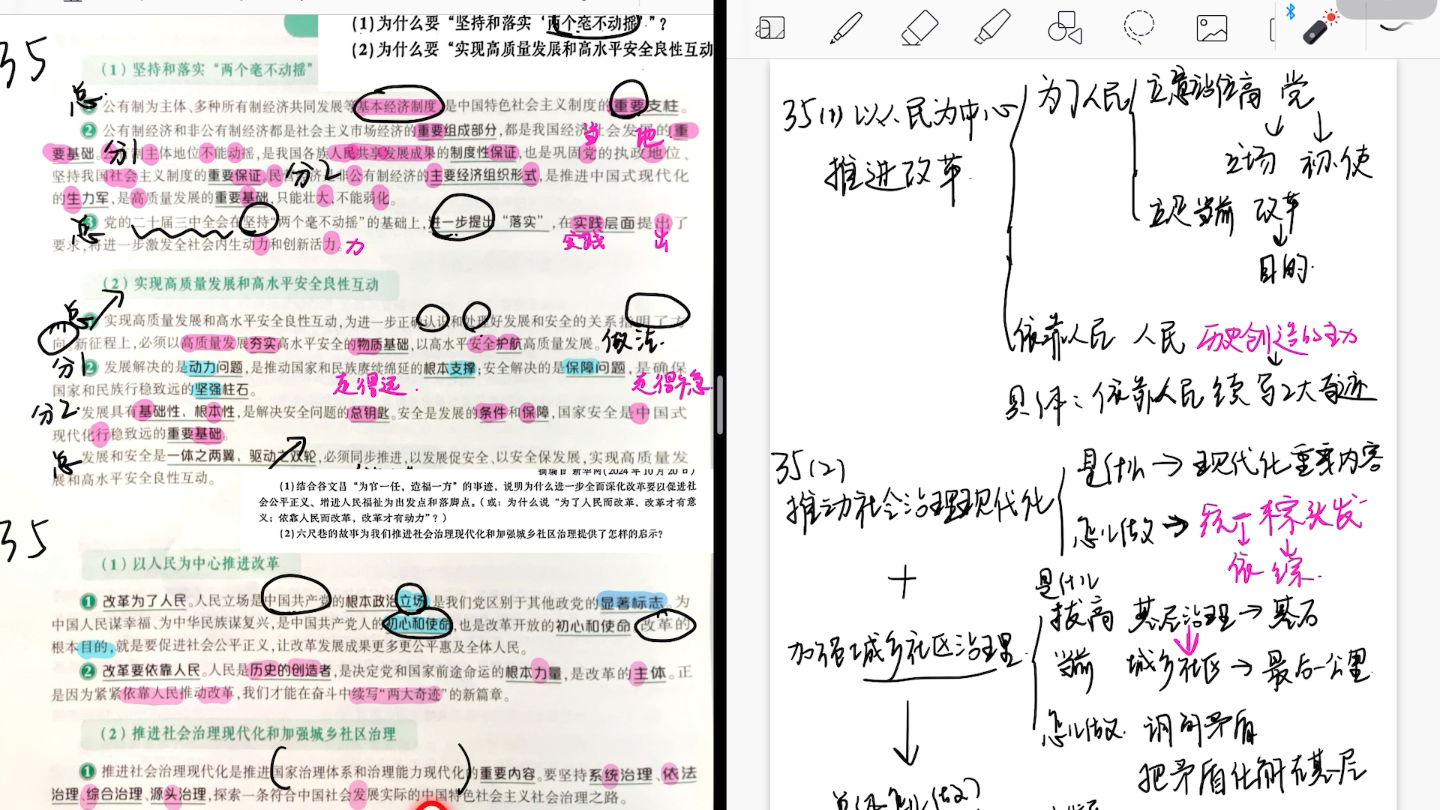 (1)为什么要“坚持和落实‘两个毫不动摇’”?
(2)为什么要“实现高质量发展和高水平安全良性互动
35
(1)坚持和落实“两个毫不动摇”
总
❶ 公有制为主体、多种所有制经济共同发展等基本经济制度,是中国特色社会主义制度的重要支柱。
❷ 公有制经济和非公有制经济都是社会主义市场经济的重要组成部分,都是我国经济社会发展的重
当 地
要基础。公有制主体地位不能动摇,是我国各族人民共享发展成果的制度性保证,也是巩固党的执政地位、
分1
坚持我国社会主义制度的重要保证。民营经济是非公有制经济的主要经济组织形式,是推进中国式现代化
分2
的生力军,是高质量发展的重要基础,只能壮大、不能弱化。
总
❸ 党的二十届三中全会在坚持“两个毫不动摇”的基础上,进一步提出“落实”,在实践层面提出了
要求,将进一步激发全社会内生动力和创新活力。
力 实践 出
(2)实现高质量发展和高水平安全良性互动
总
实现高质量发展和高水平安全良性互动,为进一步正确认识和处理好发展和安全的关系指明了方
向。新征程上,必须以高质量发展夯实高水平安全的物质基础,以高水平安全护航高质量发展。
做法
分1
❷ 发展解决的是动力问题,是推动国家和民族赓续绵延的根本支撑;安全解决的是保障问题,是确保
国家和民族行稳致远的坚强柱石。
走得远. 走得不急
分2
发展具有基础性、根本性,是解决安全问题的总钥匙。安全是发展的条件和保障,国家安全是中国式
现代化行稳致远的重要基础。
总
发展和安全是一体之两翼、驱动之双轮,必须同步推进,以发展促安全、以安全保发展,实现高质量发
展和高水平安全良性互动。
摘编自 新华网(2024年10月20日)
(1)结合谷文昌“为官一任,造福一方”的事迹,说明为什么进一步全面深化改革要以促进社
会公平正义、增进人民福祉为出发点和落脚点。(或:为什么说“为了人民而改革,改革才有意
义;依靠人民而改革,改革才有动力”?)
(2)六尺巷的故事为我们推进社会治理现代化和加强城乡社区治理提供了怎样的启示?
35
(1)以人民为中心推进改革
❶ 改革为了人民。人民立场是中国共产党的根本政治立场,是我们党区别于其他政党的显著标志。为
中国人民谋幸福、为中华民族谋复兴,是中国共产党人的初心和使命,也是改革开放的初心和使命。改革的
根本目的,就是要促进社会公平正义,让改革发展成果更多更公平惠及全体人民。
❷ 改革要依靠人民。人民是历史的创造者,是决定党和国家前途命运的根本力量,是改革的主体。正
是因为紧紧依靠人民推动改革,我们才能在奋斗中续写“两大奇迹”的新篇章。
(2)推进社会治理现代化和加强城乡社区治理
❶ 推进社会治理现代化是推进国家治理体系和治理能力现代化的重要内容。要坚持系统治理、依法
治理、综合治理、源头治理,探索一条符合中国社会发展实际的中国特色社会主义社会治理之路。
35(1) 以人民为中心
推进改革
为了人民
立意站位高 党
立场 初、使
立足当前 改革
目的.
依靠人民 人民 历史创造的主力
具体:依靠人民续写2大奇迹
35(2)
推动社会治理现代化
是什么→现代化重要内容
怎么做→ 统一棕头发
依 综.
+
加强城乡社区治理
是什么
拔高 基层治理→基石
当前 城乡社区→最后一公里
怎么做 调间矛盾
把矛盾化解在基层